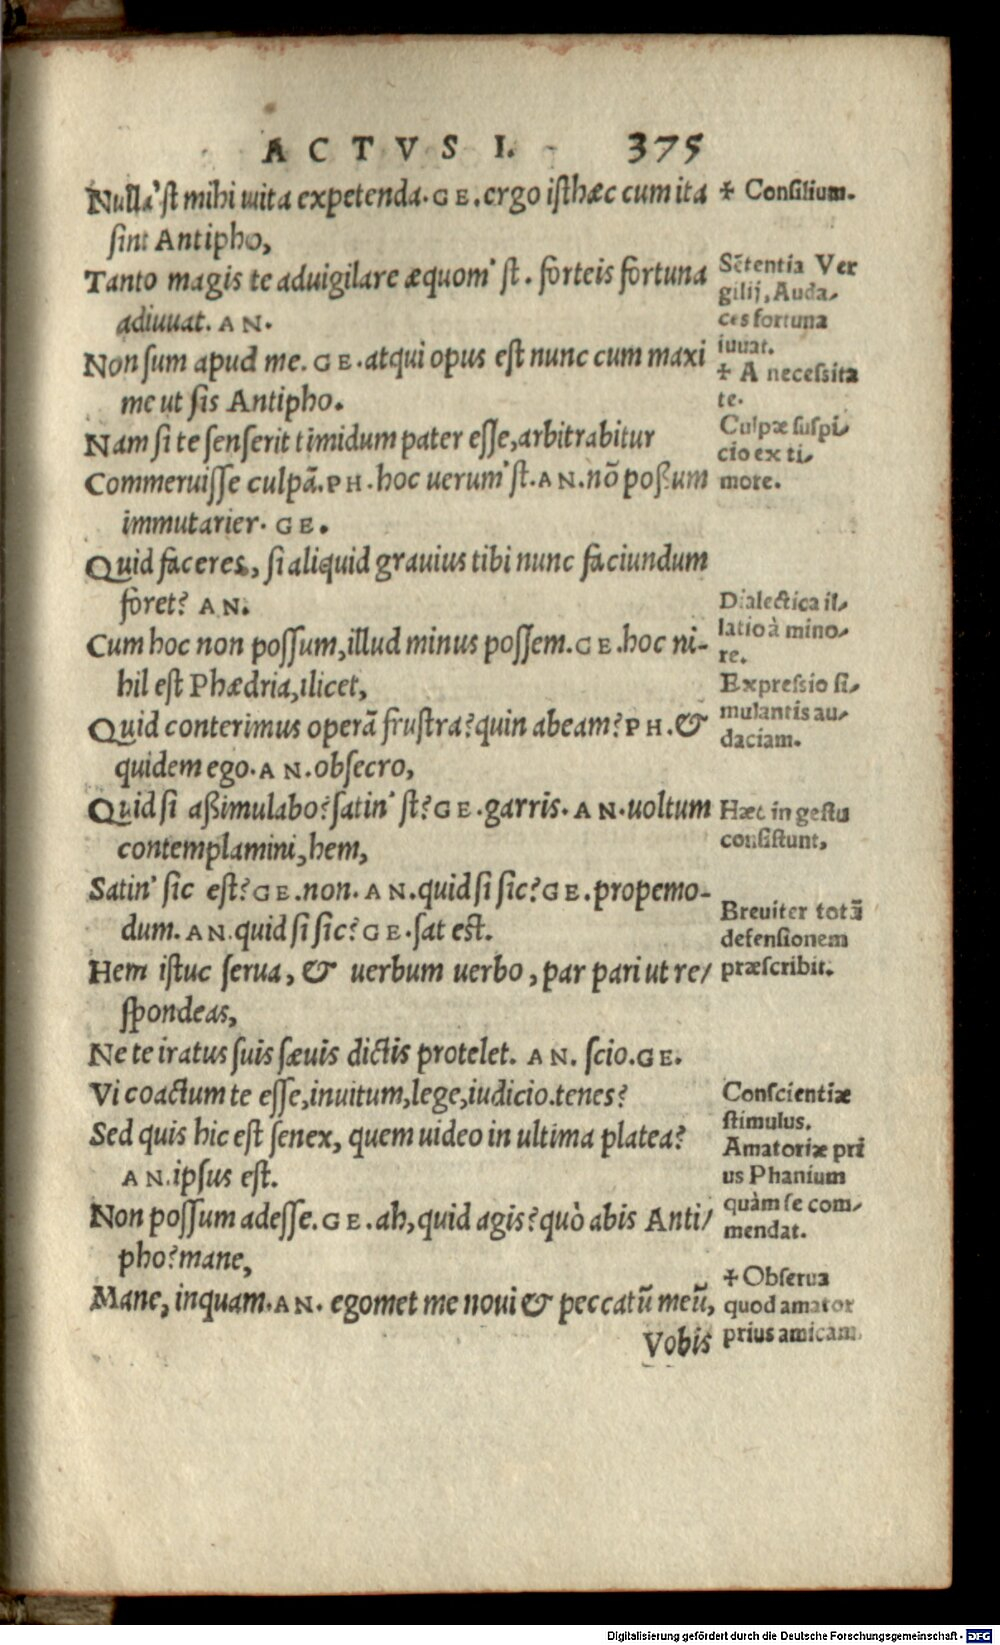 ACTVS I. 375
Nulla'st mihi uita expetenda. GE. ergo isthæc cum ita
sint Antipho,
Tanto magis te aduigilare æquom'st. forteis fortuna
adiuuat. AN.
Non sum apud me. GE. atqui opus est nunc cum maxi
me ut sis Antipho.
Nam si te senserit timidum pater esse, arbitrabitur
Commeruisse culpã. PH. hoc uerum'st. AN. nõ possum
immutarier. GE.
Quid faceres, si aliquid grauius tibi nunc faciundum
foret? AN.
Cum hoc non possum, illud minus possem. GE. hoc ni-
hil est Phædria, ilicet,
Quid conterimus operã frustra? quin abeam? PH. &
quidem ego. AN. obsecro,
Quid si aßimulabo? satin'st? GE. garris. AN. uoltum
contemplamini, hem,
Satin' sic est? GE. non. AN. quid si sic? GE. propemo-
dum. AN. quid si sic? GE. sat est.
Hem istuc serua, & uerbum uerbo, par pari ut re/
spondeas,
Ne te iratus suis sæuis dictis protelet. AN. scio. GE.
Vi coactum te esse, inuitum, lege, iudicio. tenes?
Sed quis hic est senex, quem uideo in ultima platea?
AN. ipsus est.
Non possum adesse. GE. ah, quid agis? quò abis Anti/
pho? mane,
Mane, inquam. AN. egomet me noui & peccatũ meũ,
Vobis
✢ Consilium.
Sẽtentia Ver
gilij, Auda/
ces fortuna
iuuat.
✢ A necessita
te.
Culpæ suspi/
cio ex ti/
more.
Dialectica il/
latio à mino/
re.
Expressio si/
mulantis au/
daciam.
Hæc in gestu
consistunt,
Breuiter totã
defensionem
præscribit.
Conscientiæ
stimulus.
Amatoriæ pri
us Phanium
quàm se com/
mendat.
✢ Obserua
quod amator
prius amicam
Digitalisierung gefördert durch die Deutsche Forschungsgemeinschaft - DFG